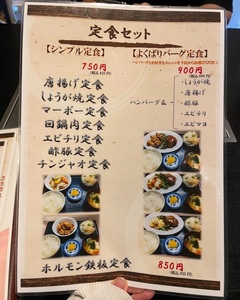 定食セット
【シンプル定食】
750円
唐揚げ定食
しょうが焼定食
マーボー定食
回鍋肉定食
エビチリ定食
酢豚定食
チンジャオ定食
【よくばりバーグ定食】
900円
ハンバーグ&
・しょうが焼
・唐揚げ
・酢豚
・エビチリ
・エビマヨ
ホルモン鉄板定食 850円